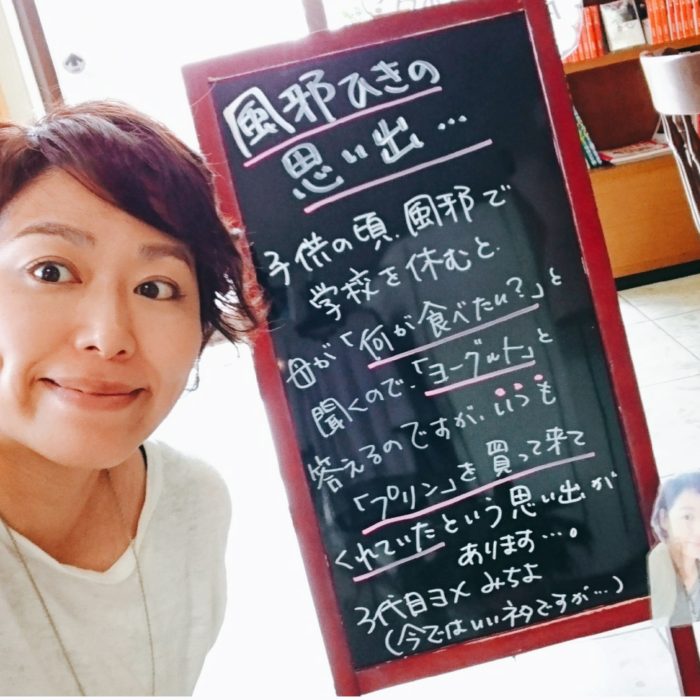 風邪ひきの
思い出…
子供の頃、風邪で
学校を休むと、
母が「何が食べたい?」と
聞くので、「ヨーグルト」と
答えるのですが、いつも
「プリン」を買って来て
くれていたという思い出が
あります…。
3代目ヨメ みちよ
(今ではいいネタですが…)